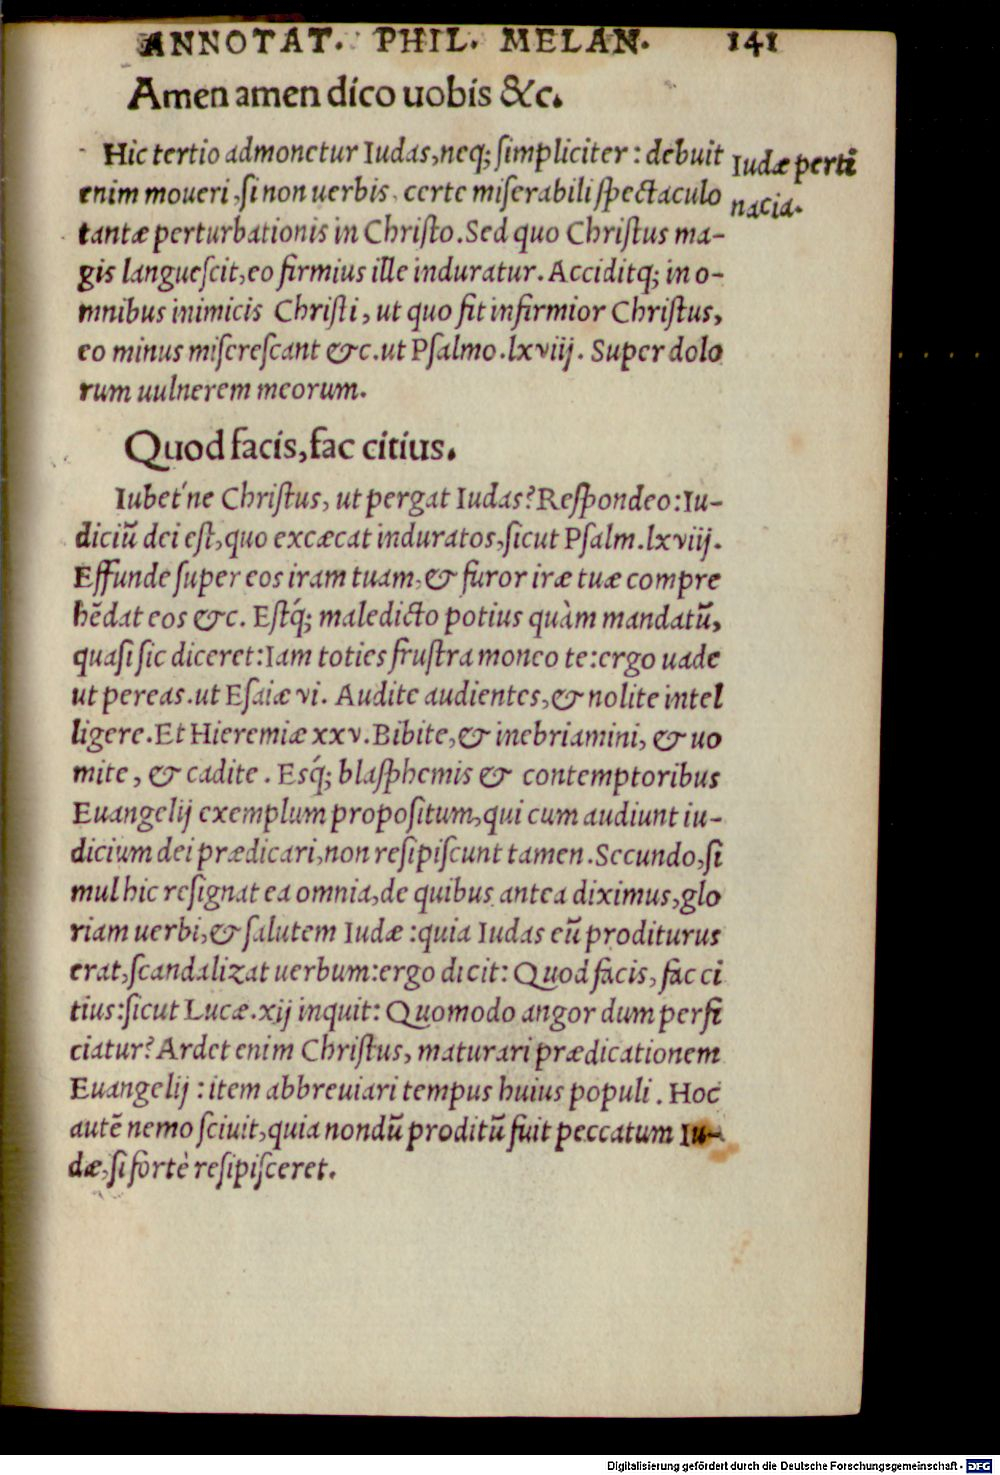 ANNOTAT. PHIL. MELAN. 141
Amen amen dico uobis &c.
Hic tertio admonetur Iudas, neq; simpliciter: debuit
Iudæ perti
enim moueri, si non uerbis, certe miserabili spectaculo
nacia.
tantæ perturbationis in Christo. Sed quo Christus ma-
gis languescit, eo firmius ille induratur. Acciditq; in o-
mnibus inimicis Christi, ut quo fit infirmior Christus,
eo minus miserescant &c. ut Psalmo. lxviij. Super dolo
rum uulnerem meorum.
Quod facis, fac citius.
Iubet'ne Christus, ut pergat Iudas? Respondeo: Iu-
diciũ dei est, quo excæcat induratos, sicut Psalm. lxviij.
Effunde super eos iram tuam, & furor iræ tuæ compre
hẽdat eos &c. Estq́; maledicto potius quàm mandatũ,
quasi sic diceret: Iam toties frustra moneo te: ergo uade
ut pereas. ut Esaiæ vi. Audite audientes, & nolite intel
ligere. Et Hieremiæ xxv. Bibite, & inebriamini, & uo
mite, & cadite. Esq́; blasphemis & contemptoribus
Euangelij exemplum propositum, qui cum audiunt iu-
dicium dei prædicari, non resipiscunt tamen. Secundo, si
mul hic resignat ea omnia, de quibus antea diximus, glo
riam uerbi, & salutem Iudæ: quia Iudas eũ proditurus
erat, scandalizat uerbum: ergo dicit: Quod facis, fac ci
tius: sicut Lucæ. xij inquit: Quomodo angor dum perfi
ciatur? Ardet enim Christus, maturari prædicationem
Euangelij: item abbreuiari tempus huius populi. Hoc
autẽ nemo sciuit, quia nondũ proditũ fuit peccatum Iu-
dæ, si fortè resipisceret.
Digitalisierung gefördert durch die Deutsche Forschungsgemeinschaft - DFG